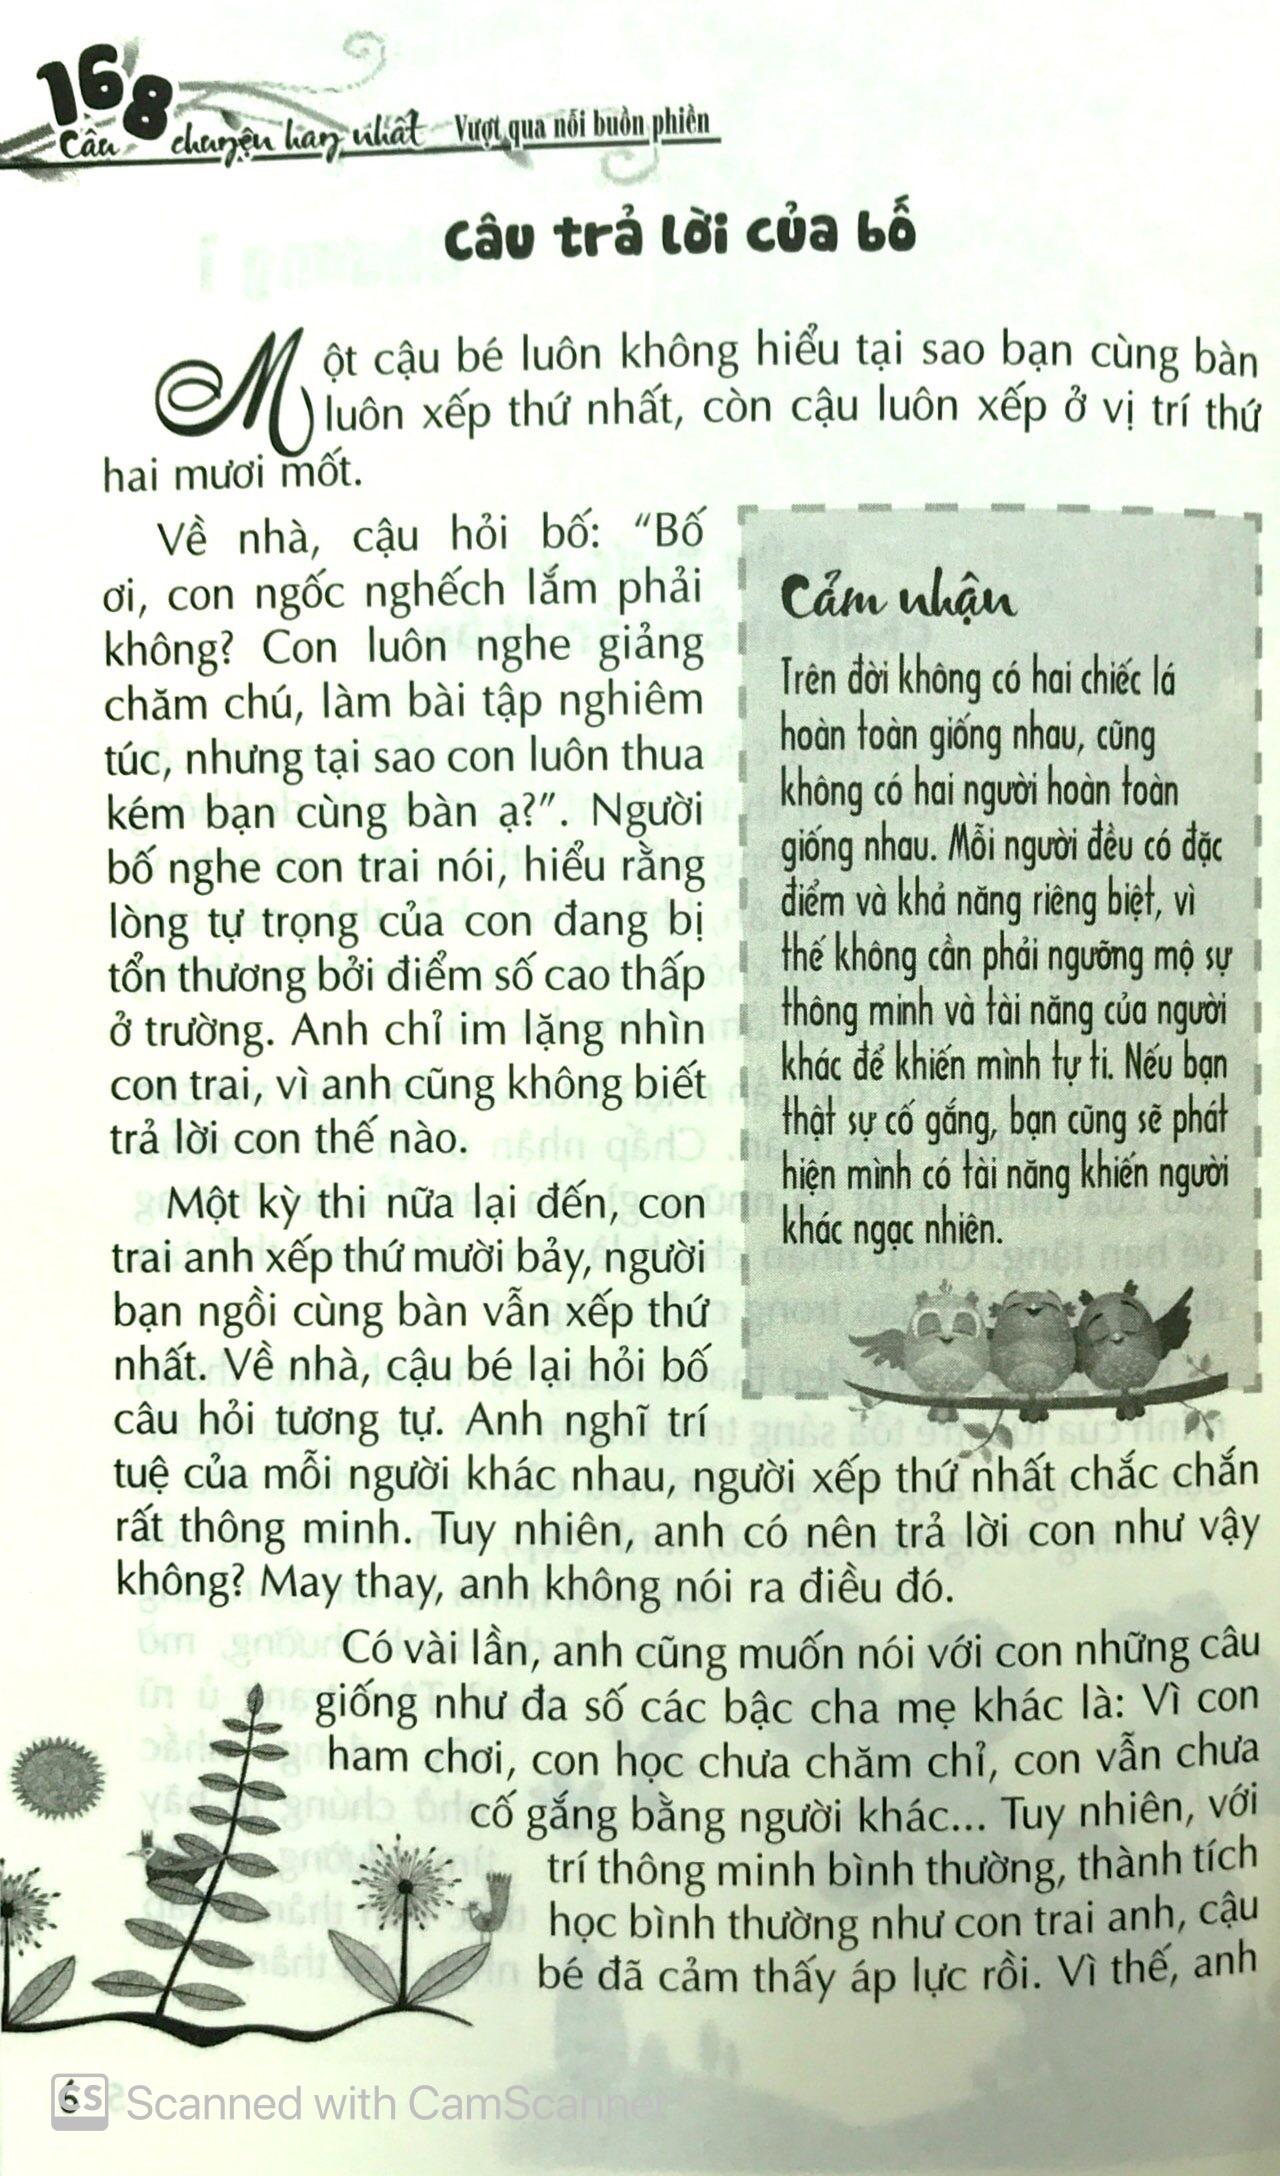 168
Câu chuyện hay nhất - Vượt qua nỗi buồn phiền
Câu trả lời của bố
Một cậu bé luôn không hiểu tại sao bạn cùng bàn
luôn xếp thứ nhất, còn cậu luôn xếp ở vị trí thứ
hai mươi mốt.
Về nhà, cậu hỏi bố: “Bố
ơi, con ngốc nghếch lắm phải
không? Con luôn nghe giảng
chăm chú, làm bài tập nghiêm
túc, nhưng tại sao con luôn thua
kém bạn cùng bàn ạ?”. Người
bố nghe con trai nói, hiểu rằng
lòng tự trọng của con đang bị
tổn thương bởi điểm số cao thấp
ở trường. Anh chỉ im lặng nhìn
con trai, vì anh cũng không biết
trả lời con thế nào.
Một kỳ thi nữa lại đến, con
trai anh xếp thứ mười bảy, người
bạn ngồi cùng bàn vẫn xếp thứ
nhất. Về nhà, cậu bé lại hỏi bố
câu hỏi tương tự. Anh nghĩ trí
tuệ của mỗi người khác nhau, người xếp thứ nhất chắc chắn
rất thông minh. Tuy nhiên, anh có nên trả lời con như vậy
không? May thay, anh không nói ra điều đó.
Có vài lần, anh cũng muốn nói với con những câu
giống như đa số các bậc cha mẹ khác là: Vì con
ham chơi, con học chưa chăm chỉ, con vẫn chưa
cố gắng bằng người khác... Tuy nhiên, với
trí thông minh bình thường, thành tích
học bình thường như con trai anh, cậu
bé đã cảm thấy áp lực rồi. Vì thế, anh
Cảm nhận
Trên đời không có hai chiếc lá
hoàn toàn giống nhau, cũng
không có hai người hoàn toàn
giống nhau. Mỗi người đều có đặc
điểm và khả năng riêng biệt, vì
thế không cần phải ngưỡng mộ sự
thông minh và tài năng của người
khác để khiến mình tự ti. Nếu bạn
thật sự cố gắng, bạn cũng sẽ phát
hiện mình có tài năng khiến người
khác ngạc nhiên.
6
CS Scanned with CamScanner